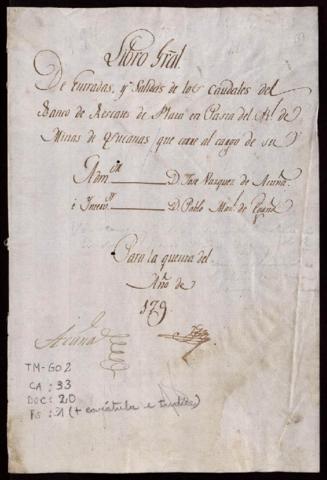 Libro Gral.
De Entradas, y Salidas de los Caudales del
Banco de Rescate de Plata en Pasta del Rl. de
Minas de Lucanas que corre al cargo de su
Admor. D. Jose Vazquez de Acuña.
é Interor. D. Pablo Manl. de
Para la quenta del
Año de
179
Acuña
TM-GO 2
CA : 33
DOC : 20
Fs : 31 (+ carátula e